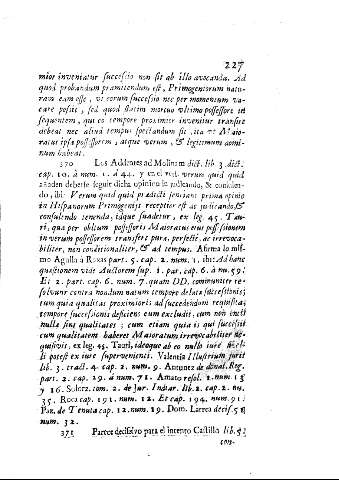 227
mior inveniatur successio non sit ab illo avocanda. Ad
quod probandum præmittendum est, Primogeniorum natu-
ram eam esse, ut eorum successio nec per momentum va-
care possit, sed quod statim mortuo ultimo possessore in
sequentem, qui eo tempore proximior invenitur transire
debeat nec aliud tempus spectandum sit, ita ut Maio-
ratus ipsa possessorem, atque verum, & legitimum domi-
num habeat.
370 Los Addentes ad Molinam dict. lib. 3. dict.
cap. 10. à num. 1. à 44. y en el vers. verum quid quid
añaden deberse seguir dicha opinion in judicando, & consulen-
do, ibi: Verum quid quid prædicti sentiant prima opinio
in Hispanorum Primogenijs receptior est ac judicando, &
consulendo tenenda, idque suadetur, ex leg. 45. Tau-
ri, qua per obitum possessoris Maioratus eius possessionem
in verum possessorem transfert pura, perfecte, ac irrevoca-
biliter, non conditionaliter, & ad tempus. Afirma lo mis-
mo Aguila à Roxas part. 5. cap. 2. num. 1. ibi: Ad hanc
quæstionem vide Auctorem sup. 1. par. cap. 6. à nu. 59:
Et 2. part. cap. 6. num. 7. quam DD. communiter re-
solvunt contra nondum natum tempore delatæ successionis;
tum quia qualitas proximioris ad succedendum requisita;
tempore successionis deficiens eum excludit, cum non insit
nulla sint qualitates; cum etiam quia is qui successit
cum qualitatem haberet Maioratum irrevocabiliter ac-
quisivit, ex leg. 45. Tauri, ideoque ab eo nullo iure avel-
li potest ex iure supervenienti. Valentia Illustrium jurit
lib. 3. tract. 4. cap. 2. num. 9. Antunez de donat. Reg.
part. 2. cap. 29. à num. 71. Amato resol. 2. num. 15
y 16. Solorz. tom. 2. de Jur. Indiar. lib. 2. cap. 2. nu.
35. Roca cap. 191. num. 12. Et cap. 194. num. 91:
Paz. de Tenuta cap. 12. num. 19. Dom. Larrea decis. 51
num. 32.
371 Parece decissivo para el intento Castillo lib. 5:
con-